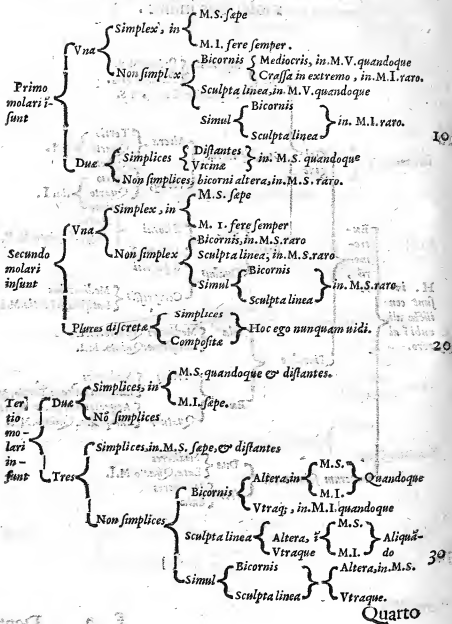 Simplex, in M.S. sæpe
M.I. fere semper.
Vna
Non simplex
Bicornis
Mediocris, in M.V. quandoque
Crassa in extremo, in M.I. raro.
Sculpta linea, in M.V. quandoque
Simul
Bicornis
Sculpta linea
in. M.I. raro.
Primo
molari i-
sunt
10
Duæ
Simplices
Distantes
Vicinæ
in. M.S. quandoque
Non simplices, bicorni altera, in. M.S. raro.
Simplex, in
M.S. sæpe
M. I. fere semper
Vna
Non simplex
Bicornis, in. M.S. raro
Sculpta linea, in. M.S. raro
Simul
Bicornis
Sculpta linea
in. M.S. raro
Secundo
molari
insunt
Plures discretæ
Simplices
Compositæ
Hoc ego nunquam uidi.
20
Duæ
Simplices, in
M.S. quandoque & distantes.
M.I. sæpe.
Nõ simplices
Ter
tio
mo-
lari
in-
sunt
Tres
Simplices, in. M.S. sæpe, & distantes
Non simplices
Bicornis
Altera, in
M.S.
M.I.
Quandoque
Vtraq;, in. M.I. quandoque
Sculpta linea
Altera, ĩ
Vtraque
M.S.
M.I.
Aliquã-
do
30
Simul
Bicornis
Sculpta linea
Altera, in. M.S.
Vtraque.
Quarto